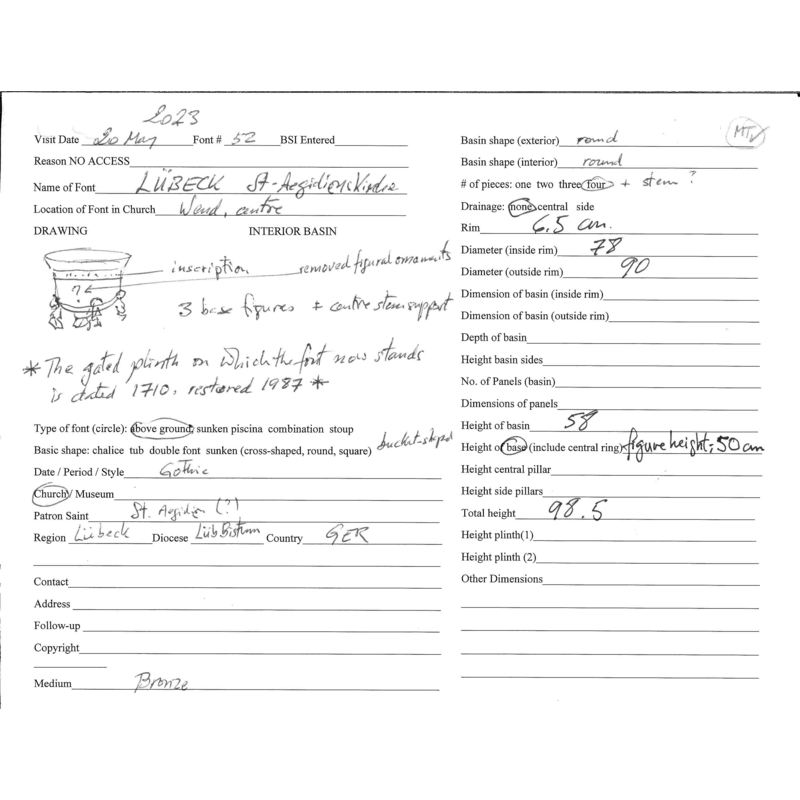 2023
Visit Date 20 May Font # 52 BSI Entered
Reason NO ACCESS
Name of Font LÜBECK St-Aegidienkirche
Location of Font in Church Wend, centre
DRAWING INTERIOR BASIN
inscription removed figural ornaments
?
3 base figures + centre stem support
* The gated plinth on which the font now stands
is dated 1710, restored 1987 *
Type of font (circle): above ground sunken piscina combination stoup
Basic shape: chalice tub double font sunken (cross-shaped, round, square) bucket-shaped
Date / Period / Style Gothic
Church / Museum
Patron Saint St. Aegidien (?)
Region Lübeck Diocese Lüb Bistum Country GER
Contact
Address
Follow-up
Copyright
Medium Bronze
MT
Basin shape (exterior) round
Basin shape (interior) round
# of pieces: one two three four + stem ?
Drainage: none central side
Rim 6.5 cm.
Diameter (inside rim) 78
Diameter (outside rim) 90
Dimension of basin (inside rim)
Dimension of basin (outside rim)
Depth of basin
Height basin sides
No. of Panels (basin)
Dimensions of panels
Height of basin 58
Height of base (include central ring) figure height: 50 cm
Height central pillar
Height side pillars
Total height 98.5
Height plinth(1)
Height plinth (2)
Other Dimensions